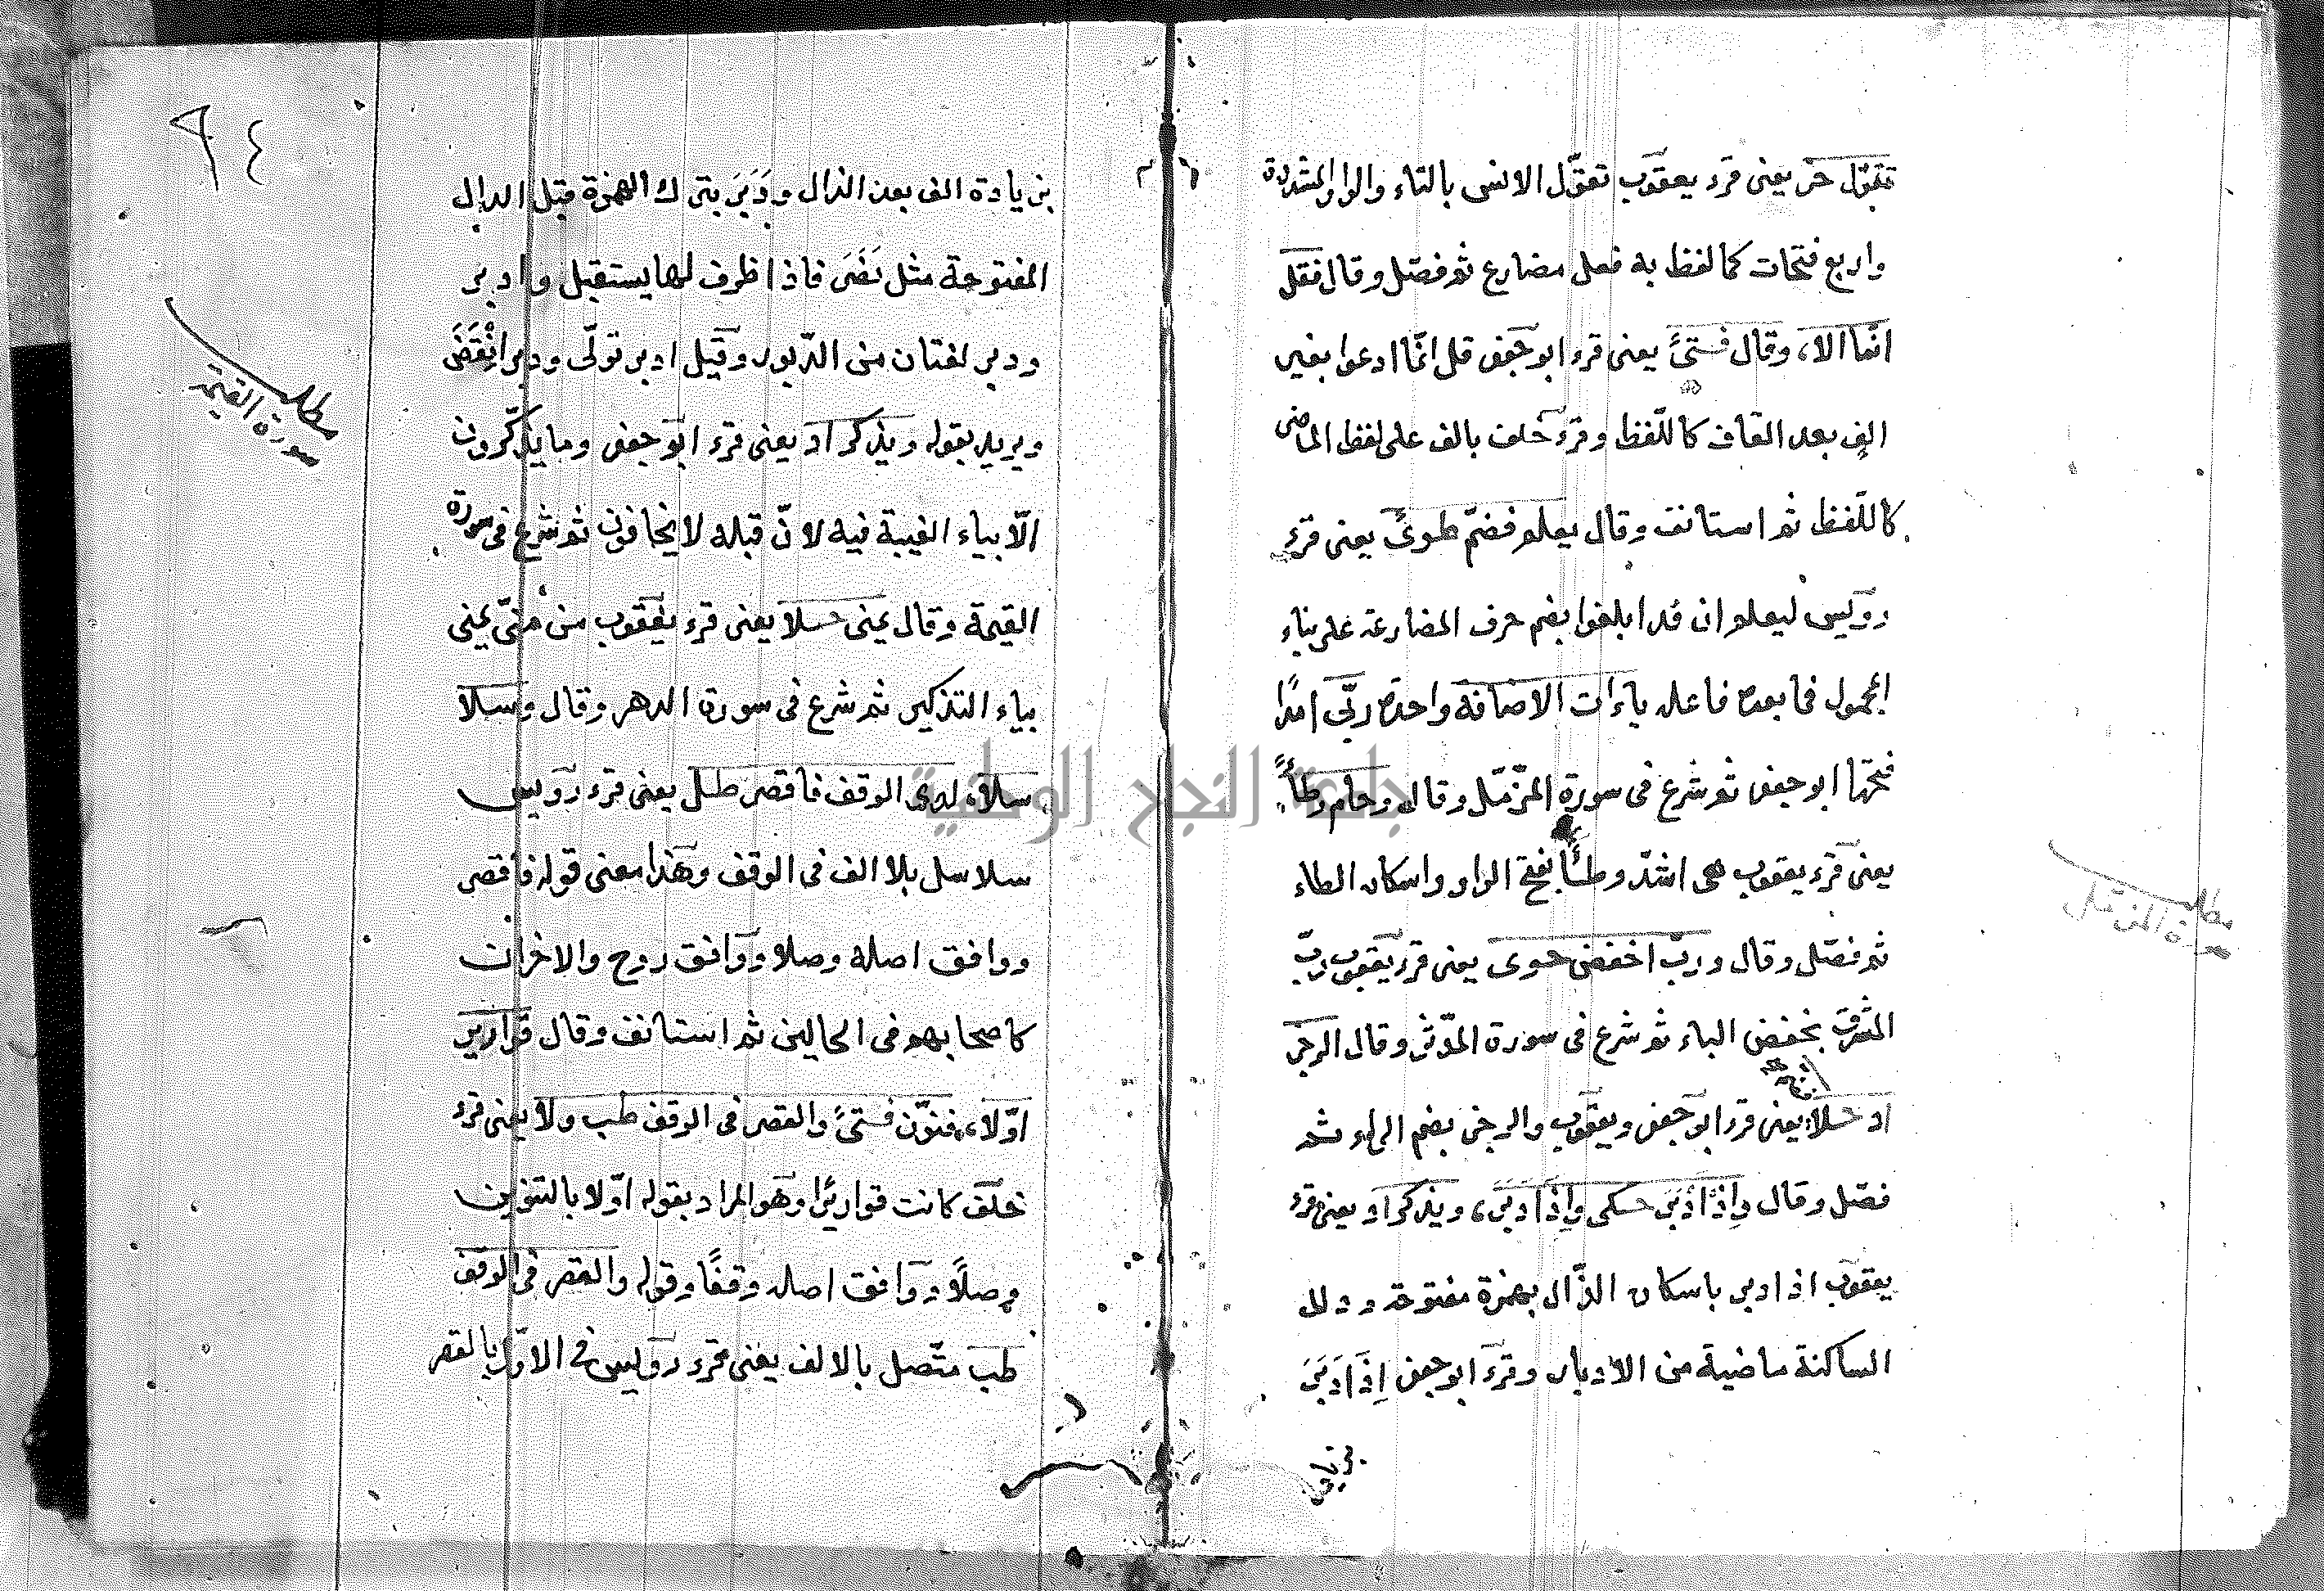 تقوّل حز يعنى قرء يعقوب تقوّل الانس بالتاء والواو المشددة
واربع فتحات كما لفظ به فعل مضارع ثم فصّل وقال فقل
انّما الا، وقال فــتىً يعنى قرء ابو جعفر قل انّما ادعوا بغير
الف بعد القاف كاللّفظ وقرء خلف بالف على لفظ الماضى
كاللّفظ ثم استانف وقال يعلم فضمّ طـوىً يعنى قرء
رويس ليعلم ان قد ابلغوا بضم حرف المضارعة على بناء
المجهول فما بعده فاعله ياءات الاضافة واحدة ربّى امدًا
فتحها ابو جعفر ثم شرع فى سورة المزّمّل وقال وحام وطأً
يعنى قرء يعقوب هى اشدّ وطـأً بفتح الواو واسكان الطاء
ثم فصّل وقال وربّ اخفض حـوى يعنى قرء يعقوب ربّ
المشرق بخفض الباء ثم شرع فى سورة المدّثر وقال الرجز
اد حـلا يعنى قرء ابو جعفر ويعقوب والرجز بضم الراء ثم
فصّل وقال وإذْ أدْبَرَ حـكى وإِذَا دَبَرَ، ويذكر اد يعنى قرء
يعقوب اذ ادبر باسكان الذّال بهمزة مفتوحة ودال
الساكنة ماضية من الادبار وقرء ابو جعفر إِذَا دَبَرَ
بزيادة
مطلب
سورة المزمل
٩٤
بزيادة الف بعد الذال ودَبَرَ بترك الهمزة قبل الدال
المفتوحة مثل نَصَرَ فاذا ظرف لما يستقبل وادبر
ودبر لغتان من الدّبور وقيل ادبر تولّى ودبر انْقَضَ
ويريد بقوله ويذكر اد يعنى قرء ابو جعفر وما يذكّرون
الّا بياء الغيبة فيه لانّ قبله لا يخافون ثم شرع فى سورة
القيمة وقال يمنى حـلا يعنى قرء يعقوب من منىّ يمنى
بياء التذكير ثم شرع فى سورة الدهر وقال وسلا
سلاء لدى الوقف فاقصر طـل يعنى قرء رويس
سلاسل بلا الف فى الوقف وهذا معنى قوله فاقصر
ووافق اصله وصلا ووافق روح والاخران
كاصحابهم فى الحالين ثم استانف وقال قوارير
اوّلا، فنوّن فـتىً والقصر فى الوقف طب ولا يعنى قرء
خلف كانت قواريرًا وهو المراد بقوله اوّلا بالتنوين
وصلًا ووافق اصله وقفًا وقوله والقصر فى الوقف
طب متّصل بالالف يعنى قرء رويس فى الاوّل بالقصر
مطلب
سورة القيمة
جامعة النجاح الوطنية